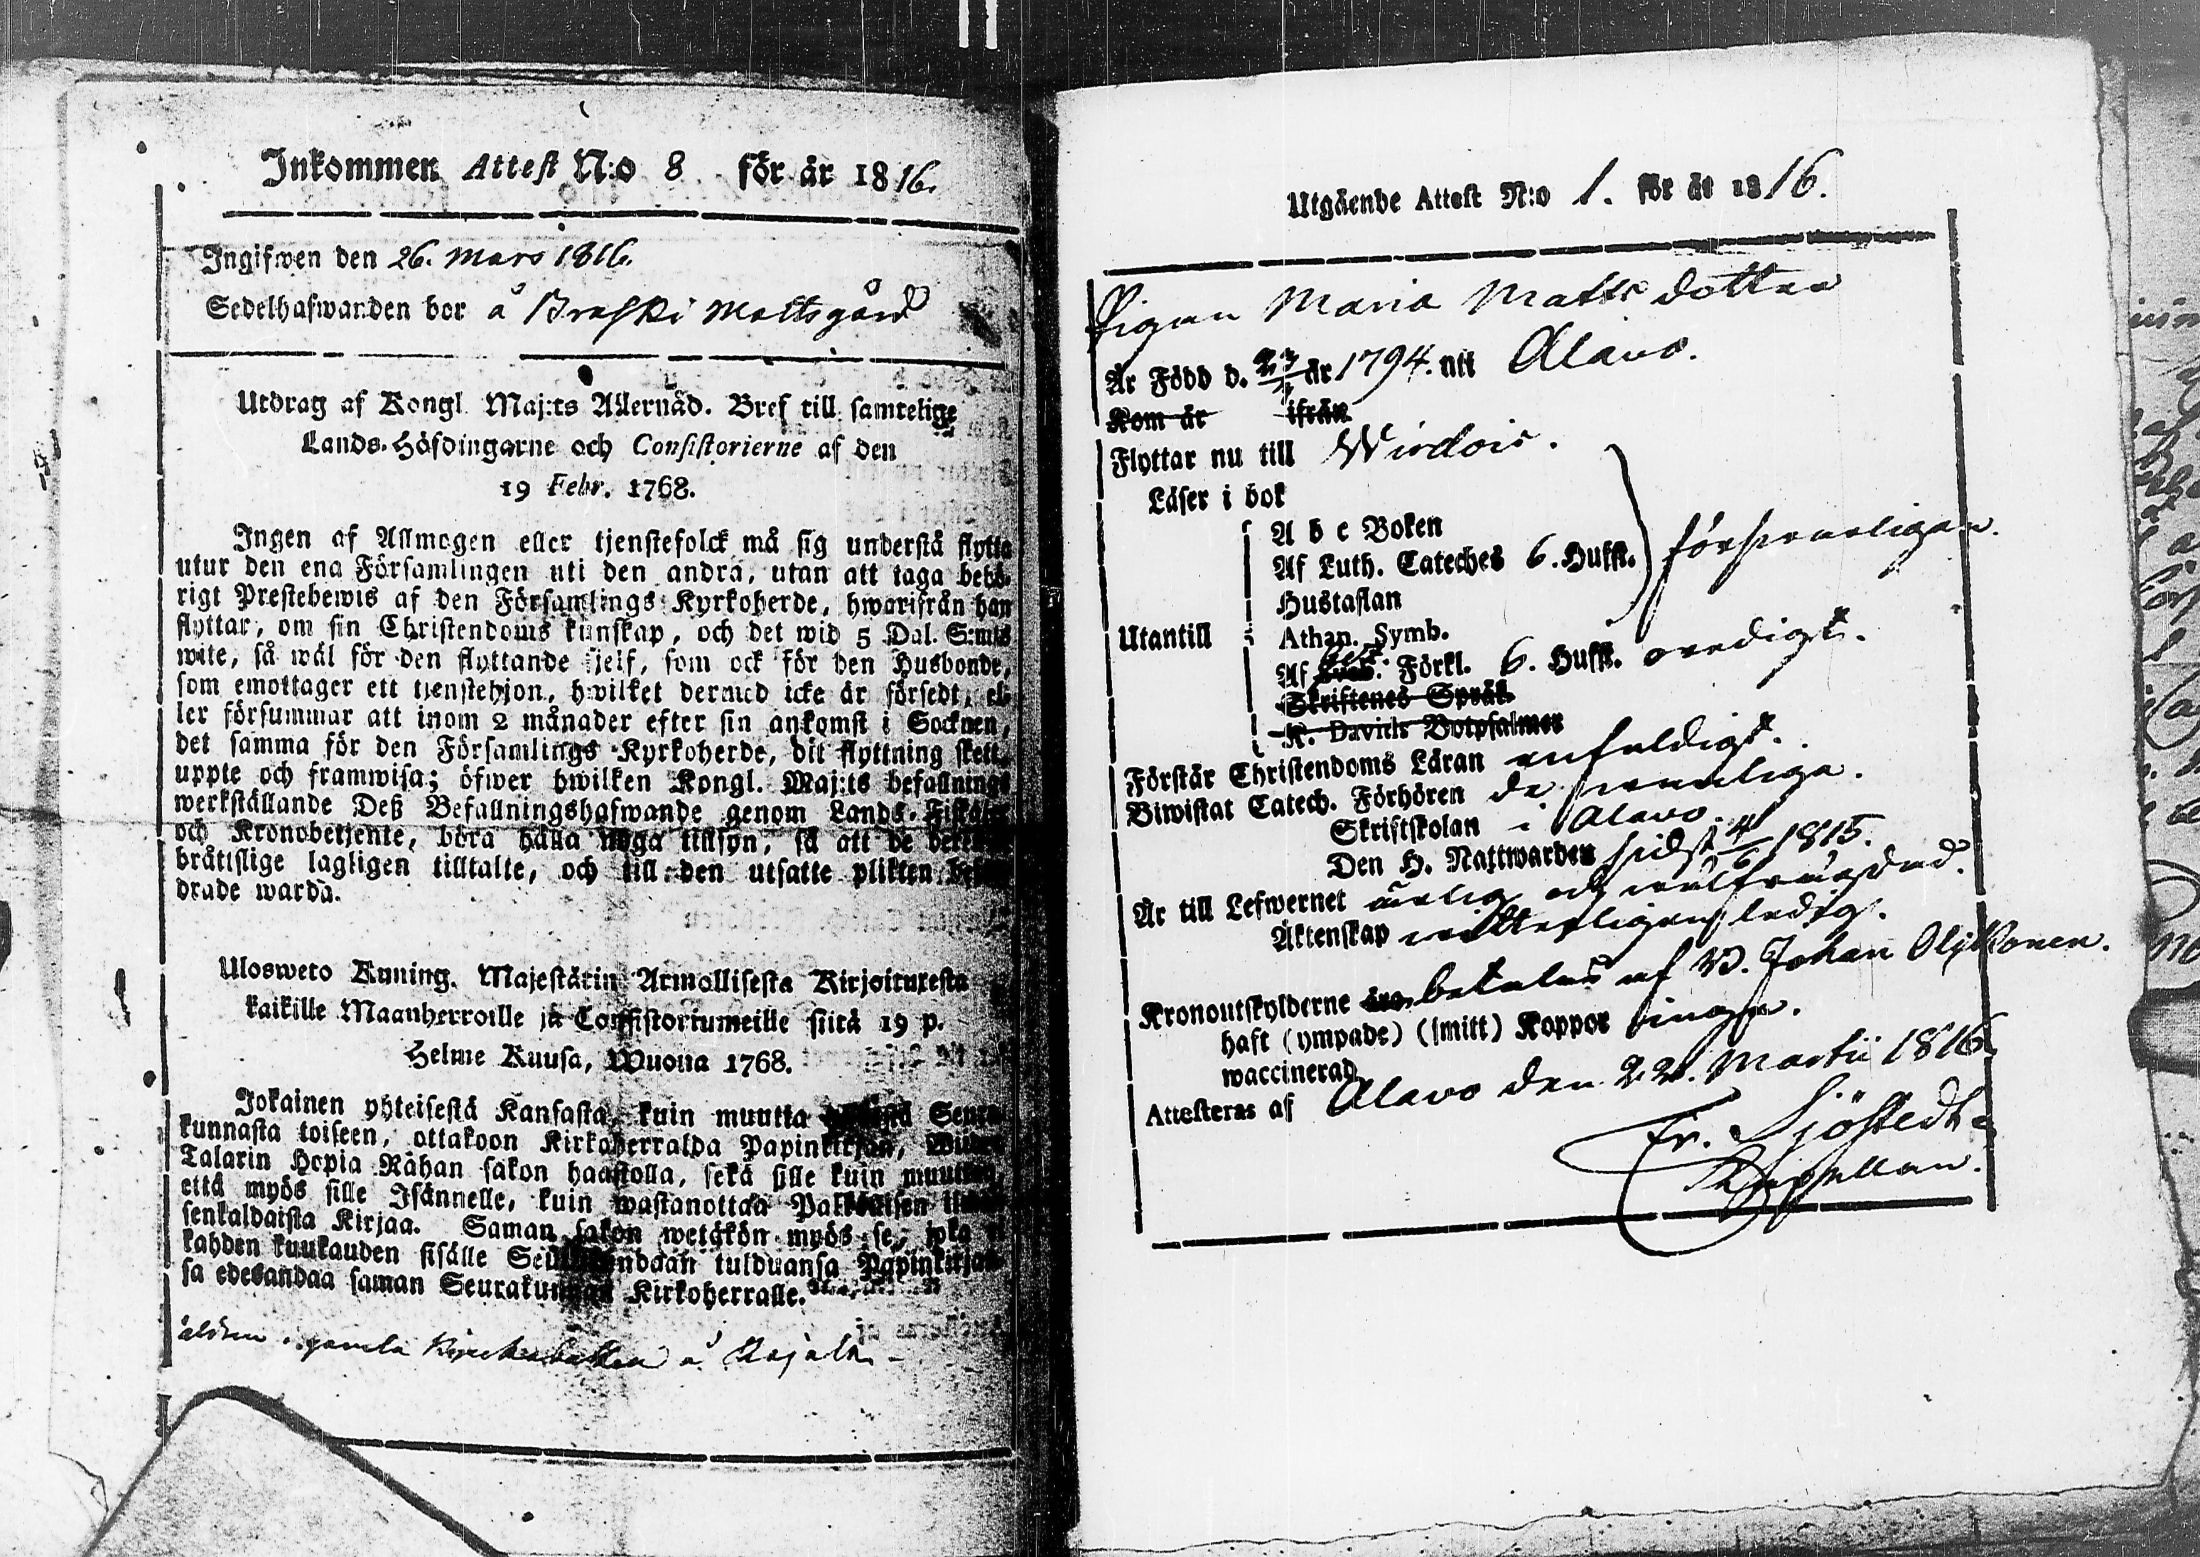 Inkommen Attest N:o 8 för år 1816.
Ingifwen den 26. Mars 1816.
Sedelhafwanden bor å Braski Mattsgård
Utdrag af Kongl. Maj:ts Allernåd. Bref till samtelige
Lands-Höfdingarne och Consistorierne af den
19 Febr. 1768.
Ingen af Allmogen eller tjenstefolck må sig understå flytta
utur den ena Församlingen uti den andra, utan att taga behö-
rigt Prestebewis af den Församlings Kyrkoherde, hwarifrån han
flyttar, om sin Christendoms kunskap, och det wid 5 Dal. S:mts
wite, så wäl för den flyttande sjelf, som ock för den Husbonde,
som emottager ett tjenstehjon, hwilket dermed icke är försedt, el-
ler försummar att inom 2 månader efter sin ankomst i Socknen,
det samma för den Församlings Kyrkoherde, dit flyttning skett,
uppte och framwisa; öfwer hwilken Kongl. Maj:ts befallnings
werkställande Deß Befallningshafwande genom Lands-Fiskaler
och Kronobetjente, böra hålla noga tillsyn, så att de
bråttslige lagligen tilltalte, och till den utsatte plikten
drade warda.
Ulosweto Kuning. Majestätin Armollisesta Kirjoituxesta
kaikille Maanherroille ja Consistoriumeille siitä 19 p.
Helme Kuusa, Wuonna 1768.
Jokainen yhteisestä Kansasta, kuin muutta Seura-
kunnasta toiseen, ottakoon Kirkoherralda Papinkirjan, Wiiden
Talarin Hopia Rahan sakon haastolla, sekä sille kuin muuttaa,
että myös sille Isännelle, kuin wastanottaa Palkollisen ilman
senkaldaista Kirjaa. Saman sakon wetäkön myös se, joka ei
kahden kuukauden sisälle Seurakundaan tulduansa Papinkirjaan-
sa edesandaa saman Seurakunnan Kirkoherralle.
gamla å
Utgående Attest N:o 1. för år 1816.
Pigan Maria Matts dotter
Är Född d. år 1794. uti Alavo.
Kom år ifrån
Flyttar nu till Wirdois.
Läser i bok
A b c Boken
Af Luth. Cateches 6. Hufst. försvarligen.
Hustaflan
Utantill Athan. Symb.
Af Förkl. 6. Hufst. oredigt.
Skriftenes Språk
K. Davids Botpsalmer
Förstår Christendoms Läran enfaldigt.
Biwistat Catech. Förhören de senaste
Skriftskolan i Alavo.
Den H. Nattwarden sidst 4/6 1815.
Är till Lefwernet ärlig och wälfrägdad.
Äktenskap witterligen ledig.
Kronoutskylderne betalas af B. Johan Olkkonen.
haft (ympade) (smitt) Koppor inga.
waccinerad
Attesteras af Alavo den 22. Martii 1816.
Fr. Sjöstedt
Kappellan.